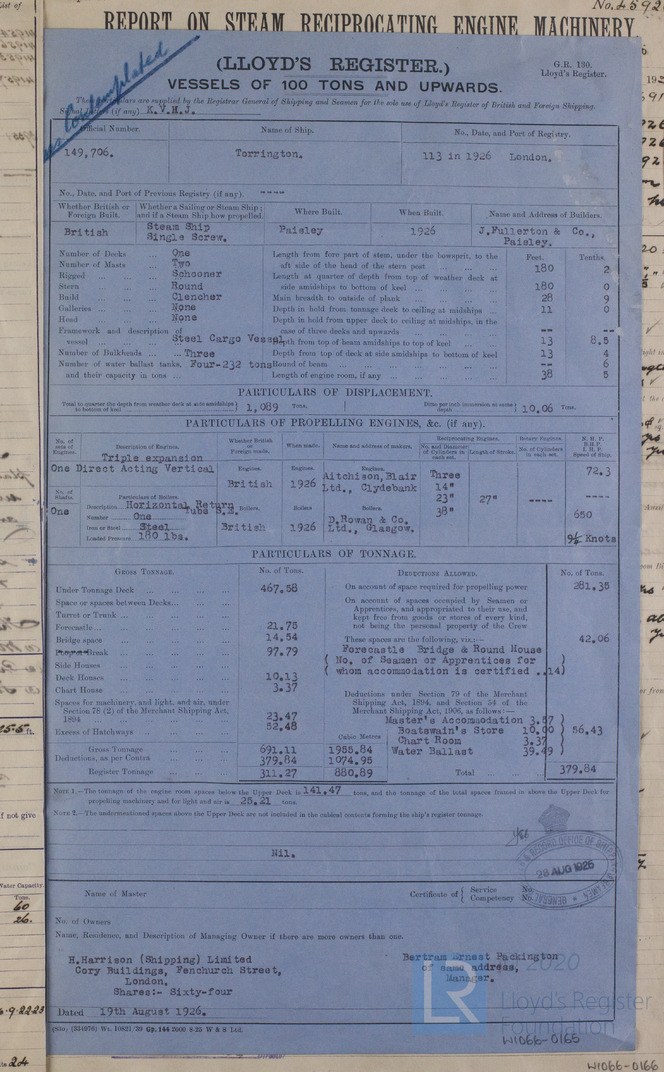 List of
No. 4592
REPORT ON STEAM RECIPROCATING ENGINE MACHINERY
Contemplated
(LLOYD'S REGISTER.)
G.R. 130.
Lloyd's Register.
VESSELS OF 100 TONS AND UPWARDS.
The particulars are supplied by the Registrar General of Shipping and Seamen for the sole use of Lloyd's Register of British and Foreign Shipping.
Signal Letters (if any) K.V.H.J.
Official Number. Name of Ship. No., Date, and Port of Registry.
149,706. Torrington. 113 in 1926 London.
No., Date, and Port of Previous Registry (if any). ----
Whether British or Foreign Built. Whether a Sailing or Steam Ship; and if a Steam Ship how propelled. Where Built. When Built. Name and Address of Builders.
British Steam Ship Single Screw. Paisley 1926 J.Fullerton & Co., Paisley.
Feet. Tenths.
Number of Decks ... One
Number of Masts ... Two
Rigged ... Schooner
Stern ... Round
Build ... Clencher
Galleries ... None
Head ... None
Framework and description of vessel ... Steel Cargo Vessel
Number of Bulkheads ... Three
Number of water ballast tanks, and their capacity in tons ... Four-232 tons
Length from fore part of stem, under the bowsprit, to the aft side of the head of the stern post ... 180 2
Length at quarter of depth from top of weather deck at side amidships to bottom of keel ... 180 0
Main breadth to outside of plank ... 28 9
Depth in hold from tonnage deck to ceiling at midships ... 11 0
Depth in hold from upper deck to ceiling at midships, in the case of three decks and upwards ... -- --
Depth from top of beam amidships to top of keel ... 13 8.5
Depth from top of deck at side amidships to bottom of keel 13 4
Round of beam ... -- 6
Length of engine room, if any ... 38 5
PARTICULARS OF DISPLACEMENT.
Total to quarter the depth from weather deck at side amidships to bottom of keel } 1,089 Tons. Ditto per inch immersion at same depth } 10.06 Tons.
PARTICULARS OF PROPELLING ENGINES, &c. (if any).
No. of sets of Engines. Description of Engines. Whether British or Foreign made. When made. Name and address of makers. Reciprocating Engines. Rotary Engines. N. H. P.
B.H.P.
I. H. P.
Speed of Ship.
No. and Diameter of Cylinders in each set. Length of Stroke. No. of Cylinders in each set.
Triple expansion
One Direct Acting Vertical
Engines. British Engines. 1926 Engines. Aitchison,Blair Ltd., Clydebank
Three
14"
23"
38"
27" ---- 72.3
----
650
9½ Knots
No. of Shafts. Particulars of Boilers.
One Description Horizontal Return Tube S.E.
Number One
Iron or Steel Steel
Loaded Pressure 180 lbs.
Boilers. British Boilers 1926 Boilers. D.Rowan & Co. Ltd., Glasgow.
PARTICULARS OF TONNAGE.
GROSS TONNAGE. No. of Tons. DEDUCTIONS ALLOWED. No. of Tons.
Under Tonnage Deck ... 467.58
Space or spaces between Decks ...
Turret or Trunk ...
Forecastle ... 21.75
Bridge space ... 14.54
Poop or Break ... 97.79
Side Houses ...
Deck Houses ... 10.13
Chart House ... 3.37
Spaces for machinery, and light, and air, under Section 78 (2) of the Merchant Shipping Act, 1894 ... 23.47
Excess of Hatchways ... 52.48
Cubic Metres
Gross Tonnage ... 691.11 1955.84
Deductions, as per Contra ... 379.84 1074.95
Register Tonnage ... 311.27 880.89
On account of space required for propelling power 281.35
On account of spaces occupied by Seamen or Apprentices, and appropriated to their use, and kept free from goods or stores of every kind, not being the personal property of the Crew
These spaces are the following, viz.:— 42.06
Forecastle Bridge & Round House
No. of Seamen or Apprentices for whom accommodation is certified ..14)
Deductions under Section 79 of the Merchant Shipping Act, 1894, and Section 54 of the Merchant Shipping Act, 1906, as follows:—
Master's Accommodation 3.57
Boatswain's Store 10.00
Chart Room 3.37
Water Ballast 39.49
56.43
Total ... 379.84
NOTE 1.—The tonnage of the engine room spaces below the Upper Deck is 141.47 tons, and the tonnage of the total spaces framed in above the Upper Deck for propelling machinery and for light and air is 25.21 tons.
NOTE 2.—The undermentioned spaces above the Upper Deck are not included in the cubical contents forming the ship's register tonnage.
Nil.
28 AUG 1926
Name of Master Certificate of { Service No.
Competency No.
No. of Owners
Name, Residence, and Description of Managing Owner if there are more owners than one.
H.Harrison (Shipping) Limited
Cory Buildings, Fenchurch Street,
London.
Shares:- Sixty-four
Bertram Ernest Packington
of same address,
Manager.
Dated 19th August 1926.
(830) (334976) Wt. 10821/39 Gp. 144 2000 8 25 W & S Ltd.
2020
LR
Lloyd's Register
Foundation
W1066-0165
W1066-0166
if not give
Water Capacity
Tons.
60
26.
24